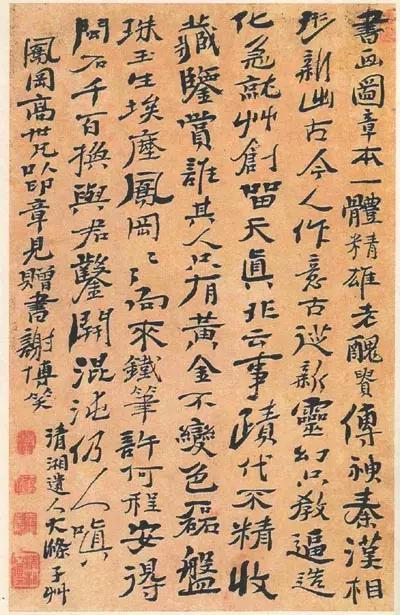 書画圖章本一體精雄老醜貴傳神秦漢相
形新出古今人作意古從新靈幻只教逼造
化急就艸創留天真非云事蹟代不精收
藏鑒賞誰其人只有黃金不變色磊盤
珠玉生埃塵鳳岡々々向來鐵筆許何程安得
閒石千百換與君鑿開混沌仍人嗔
鳳岡高世兄以印章見贈書謝博笑
清湘遺人大滌子艸